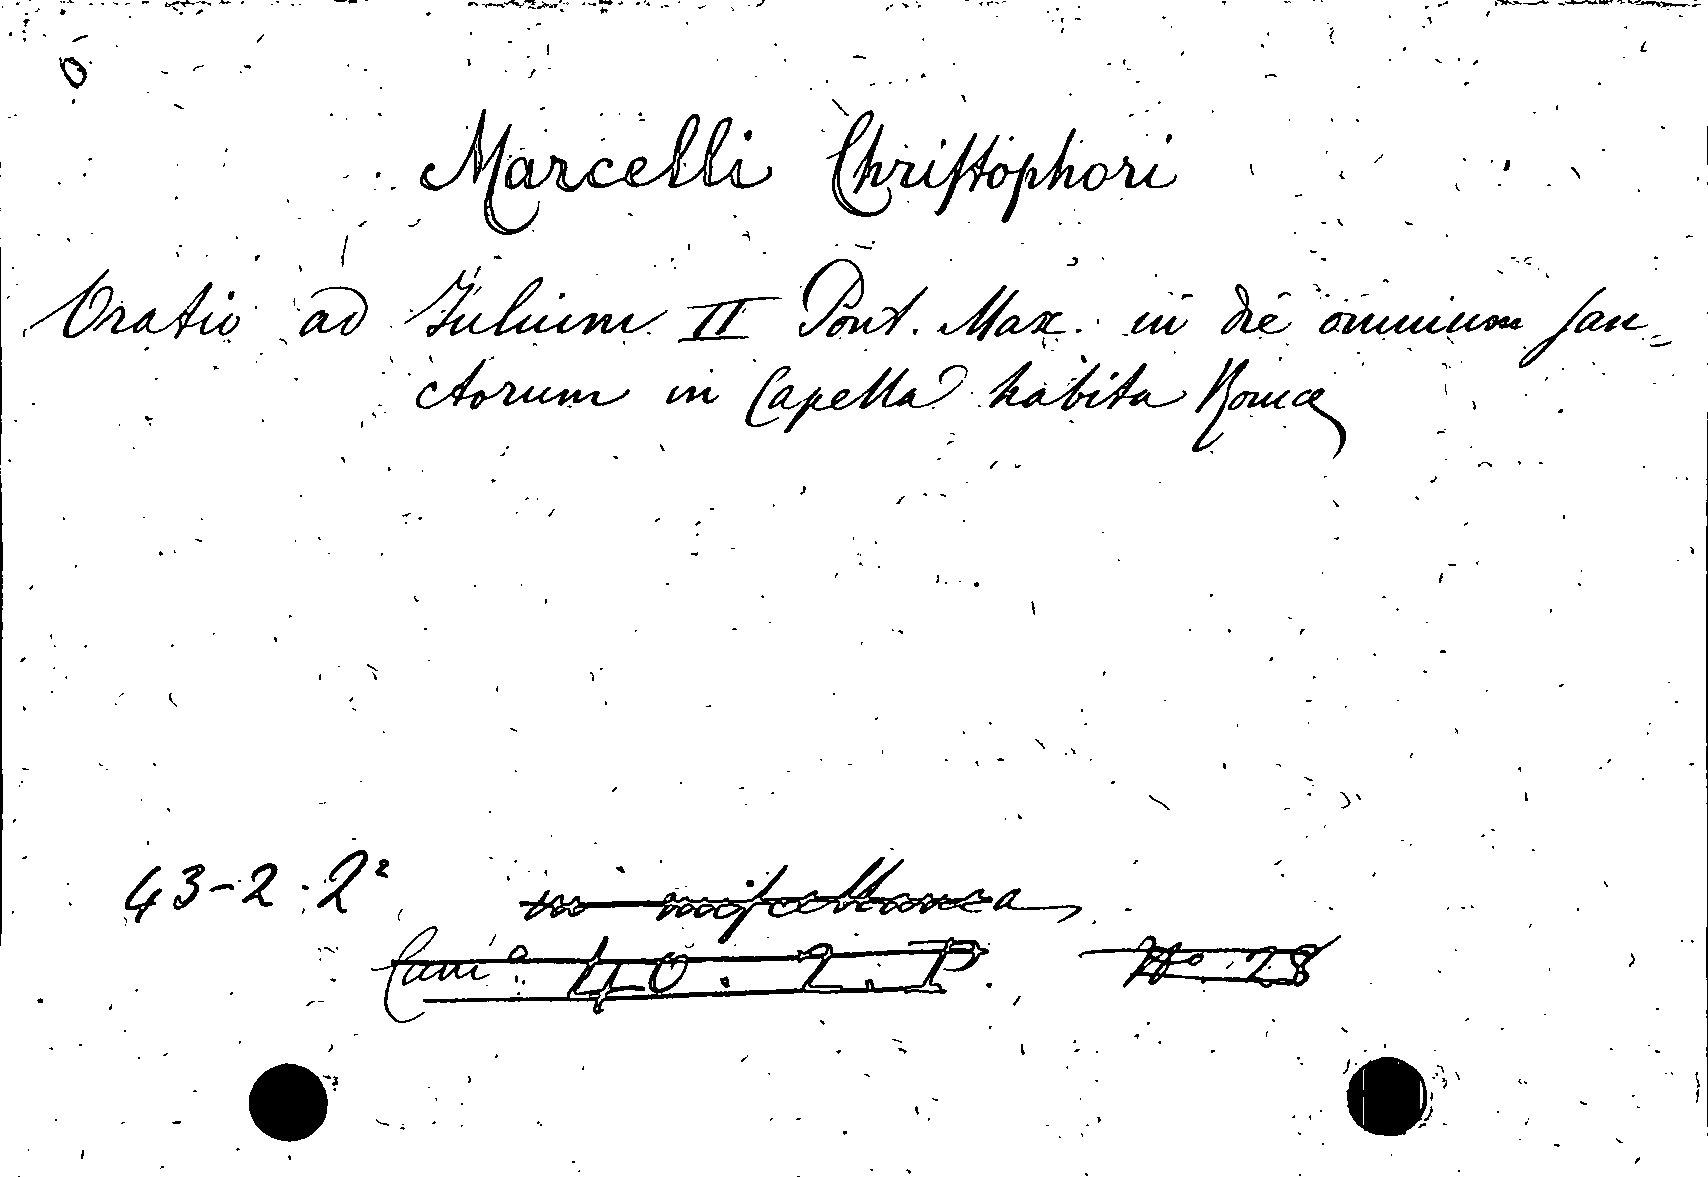 Marcelli Chriſtophori
Oratio ad Julium II Pont. Max. in die omnium San-
ctorum in Capella habita Romæ
43-2.2²
in miſcellanea
Cam.ª 40.2.P. Nº 28